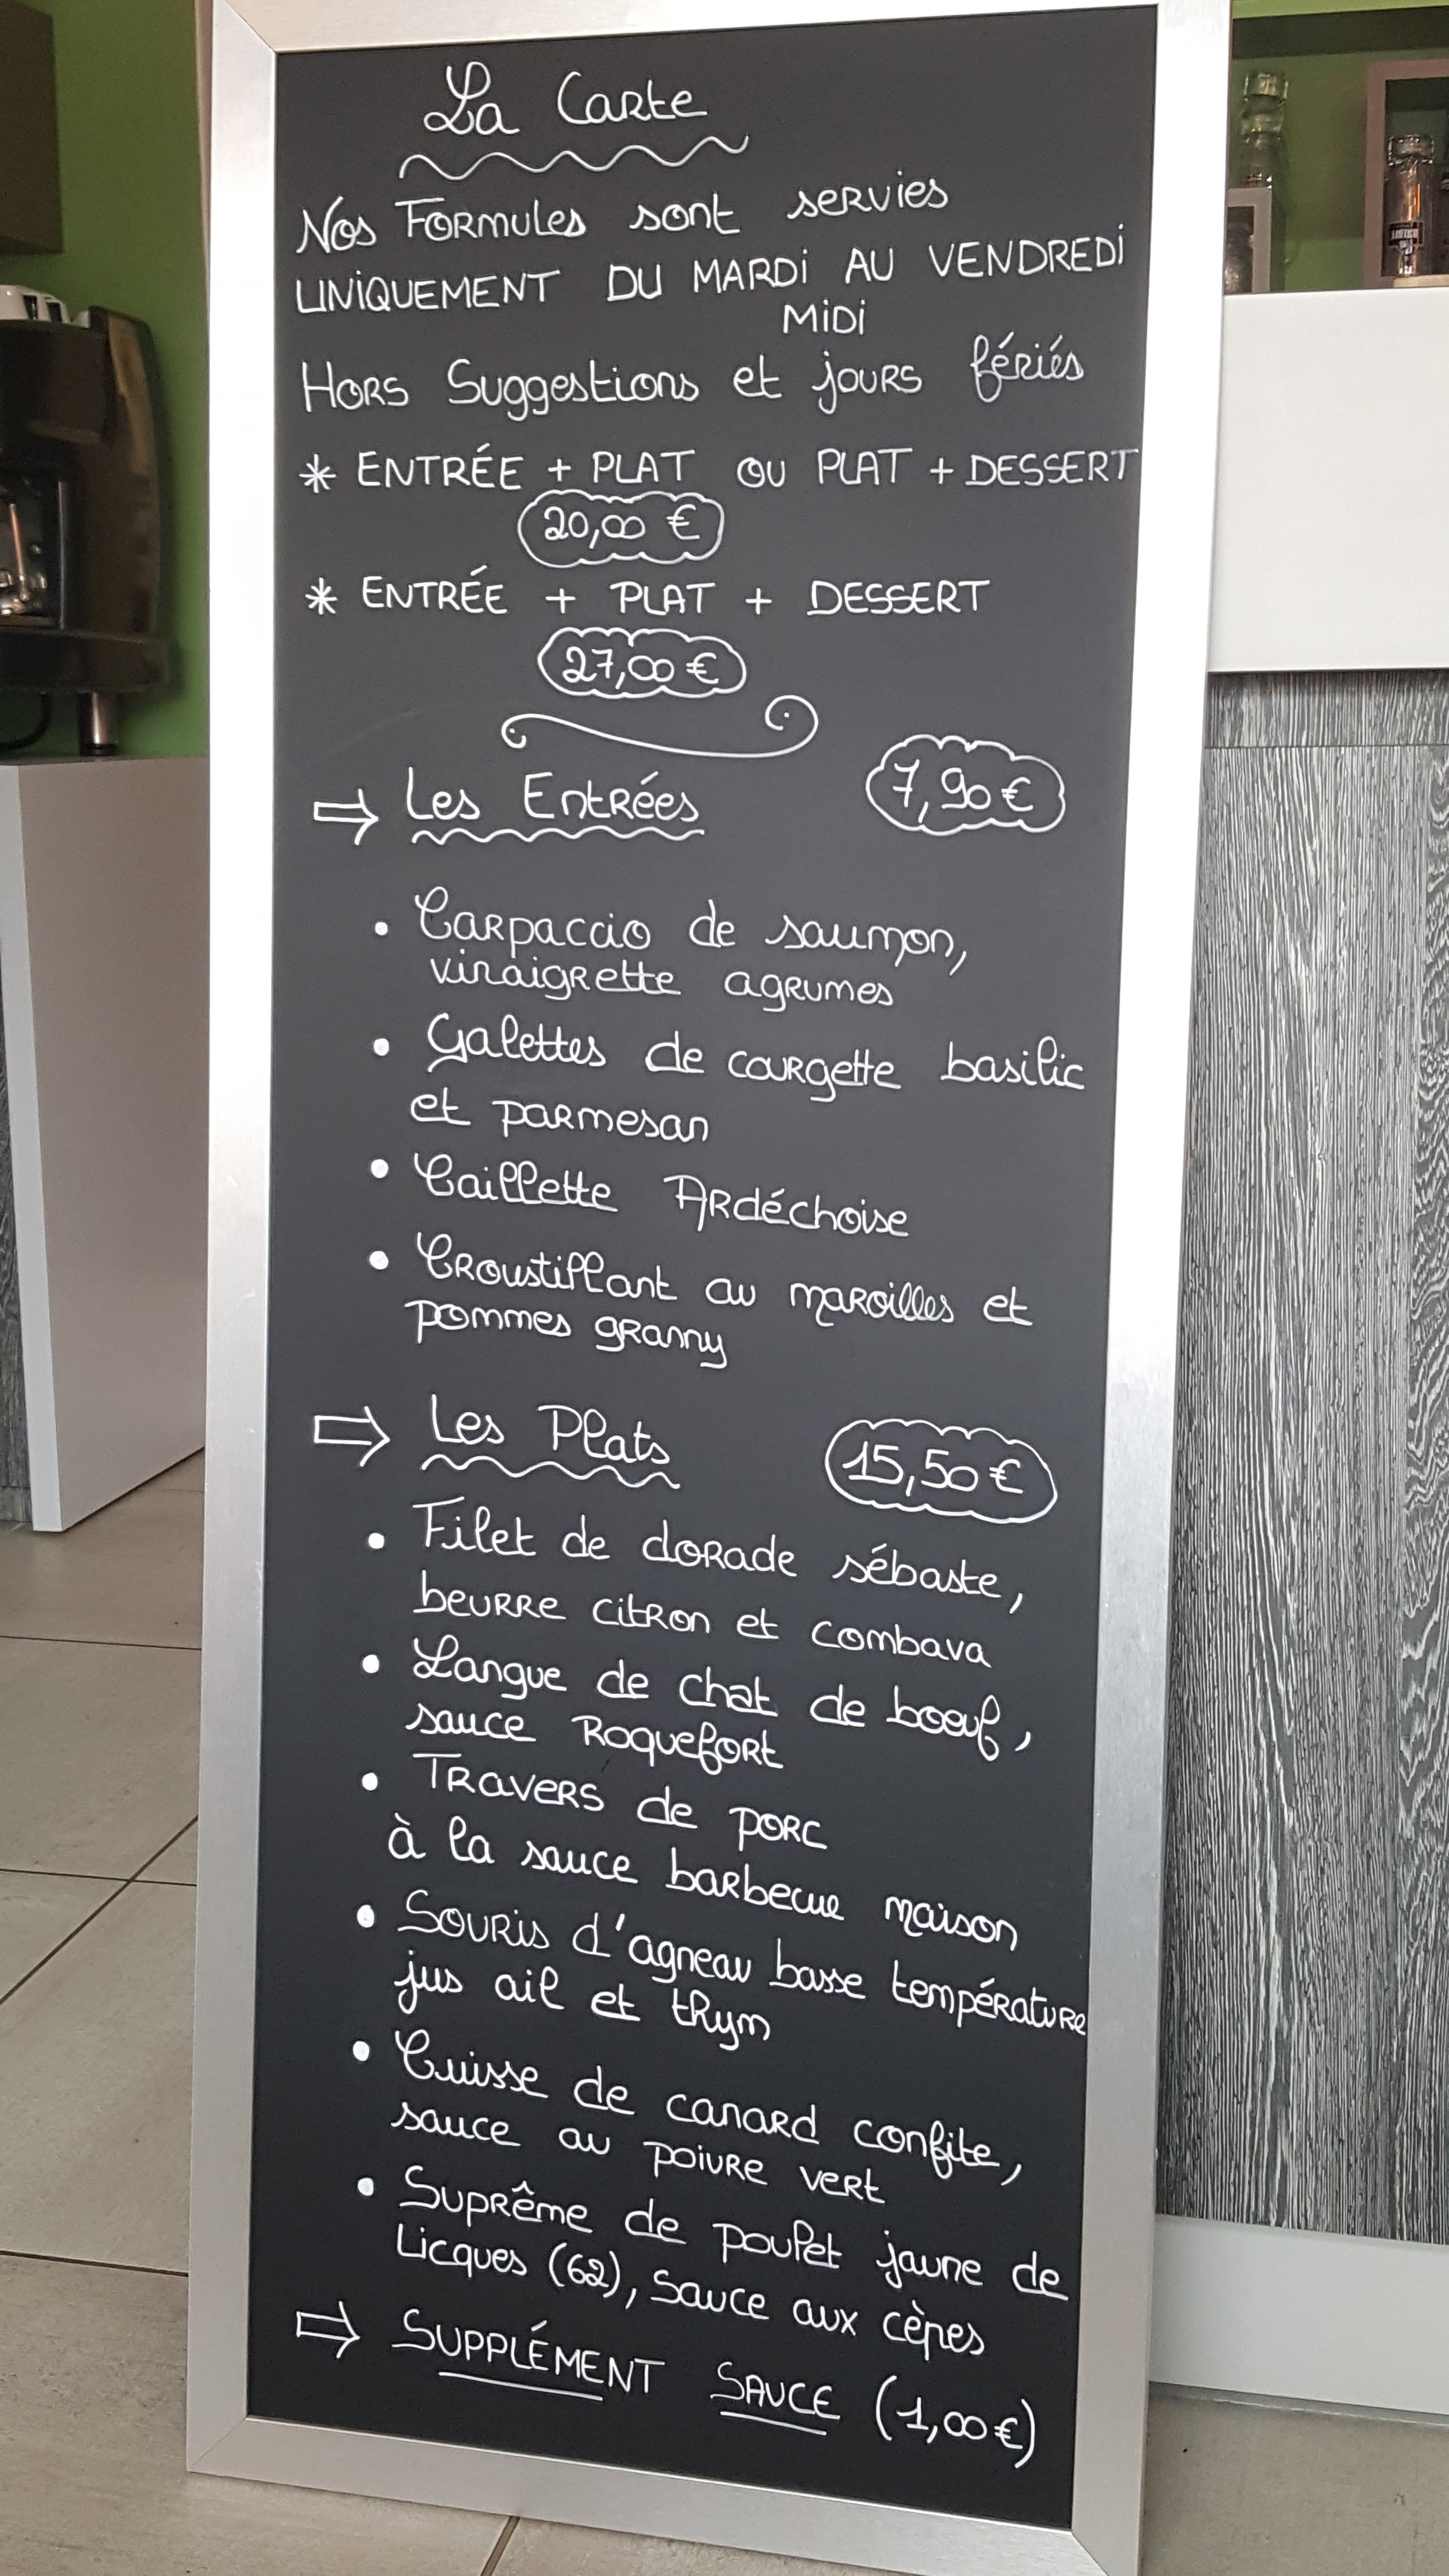 La Carte
Nos Formules sont servies
UNIQUEMENT DU MARDI AU VENDREDI
MIDI
Hors Suggestions et jours fériés
* ENTRÉE + PLAT OU PLAT + DESSERT
20,00 €
* ENTRÉE + PLAT + DESSERT
27,00 €
⇨ Les Entrées 7,90 €
• Carpaccio de saumon,
vinaigrette agrumes
• Galettes de courgette basilic
et parmesan
• Caillette Ardéchoise
• Croustillant au maroilles et
pommes granny
⇨ Les Plats 15,50 €
• Filet de dorade sébaste,
beurre citron et combava
• Langue de chat de boeuf,
sauce Roquefort
• Travers de porc
à la sauce barbecue maison
• Souris d'agneau basse température
jus ail et thym
• Cuisse de canard confite,
sauce au poivre vert
• Suprême de poulet jaune de
Licques (62), Sauce aux cèpes
⇨ SUPPLÉMENT SAUCE (1,00 €)